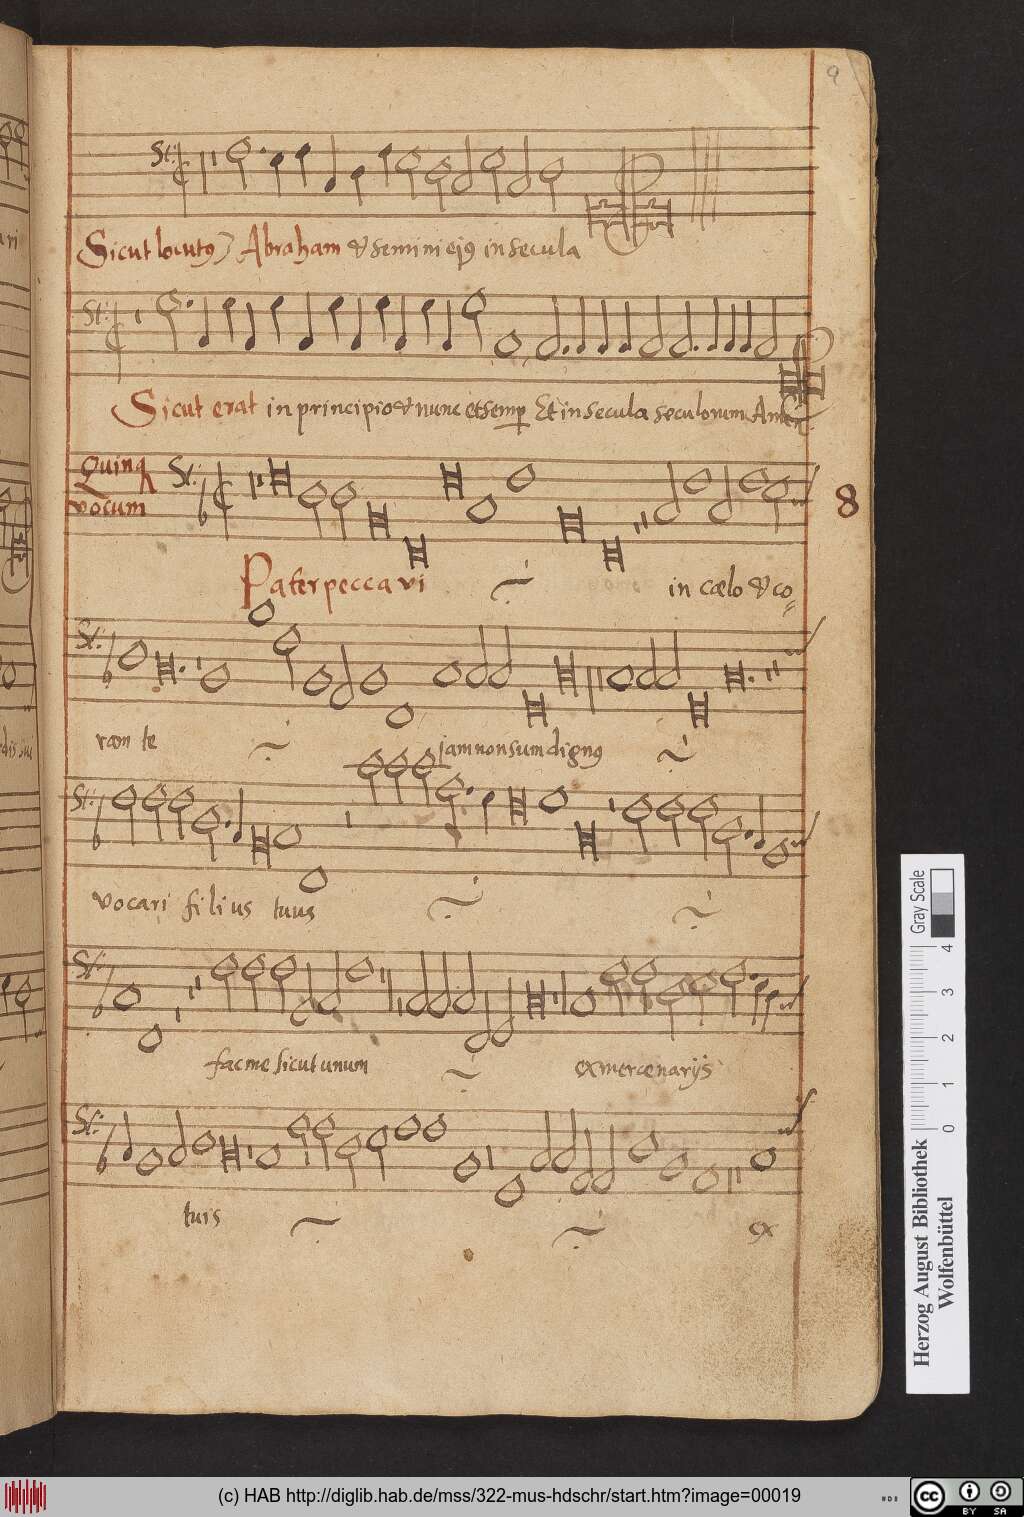 9
Sicut locutꝰ Abraham & semini ejꝰ in secula
Sicut erat in principio & nunc et semp Et in secula seculorum Amen
Quinq
vocum
8
Pater peccavi in cœlo & co=
ram te jam non sum dignꝰ
vocari filius tuus
fac me sicut unum ex mercenarijs
tuis ex
Gray Scale
0 1 2 3 4
Herzog August Bibliothek
Wolfenbüttel
(c) HAB http://diglib.hab.de/mss/322-mus-hdschr/start.htm?image=00019
cc BY SA